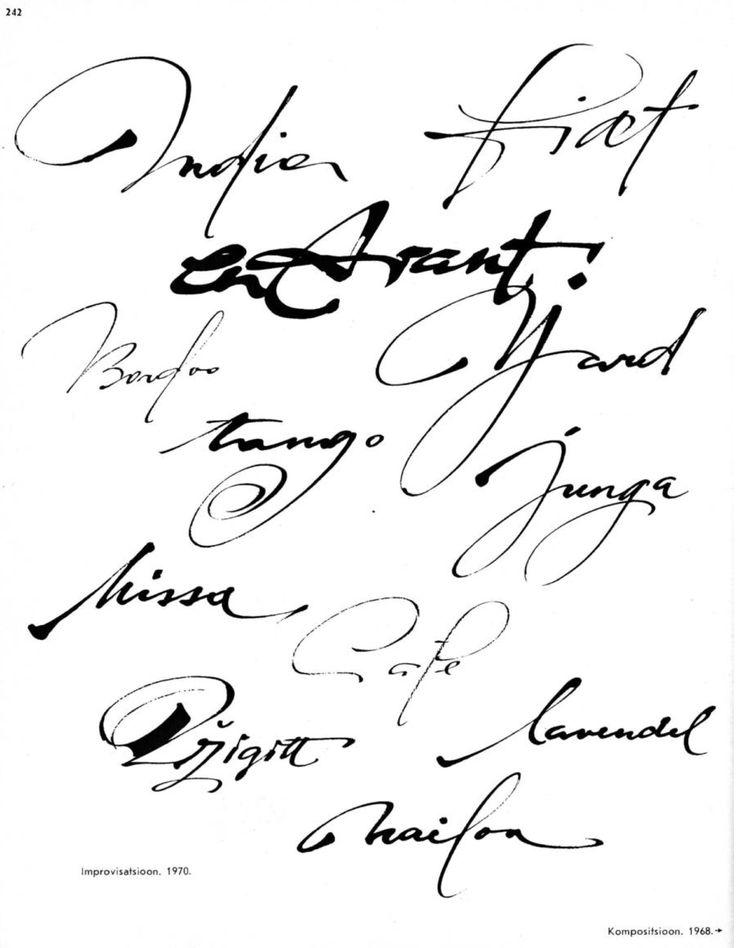 242
India fiat
en Avant!
Bordoo Yard
tango junga
Missa
Café
Džigitt lavendel
nailon
Improvisatsioon. 1970.
Kompositsioon. 1968.→